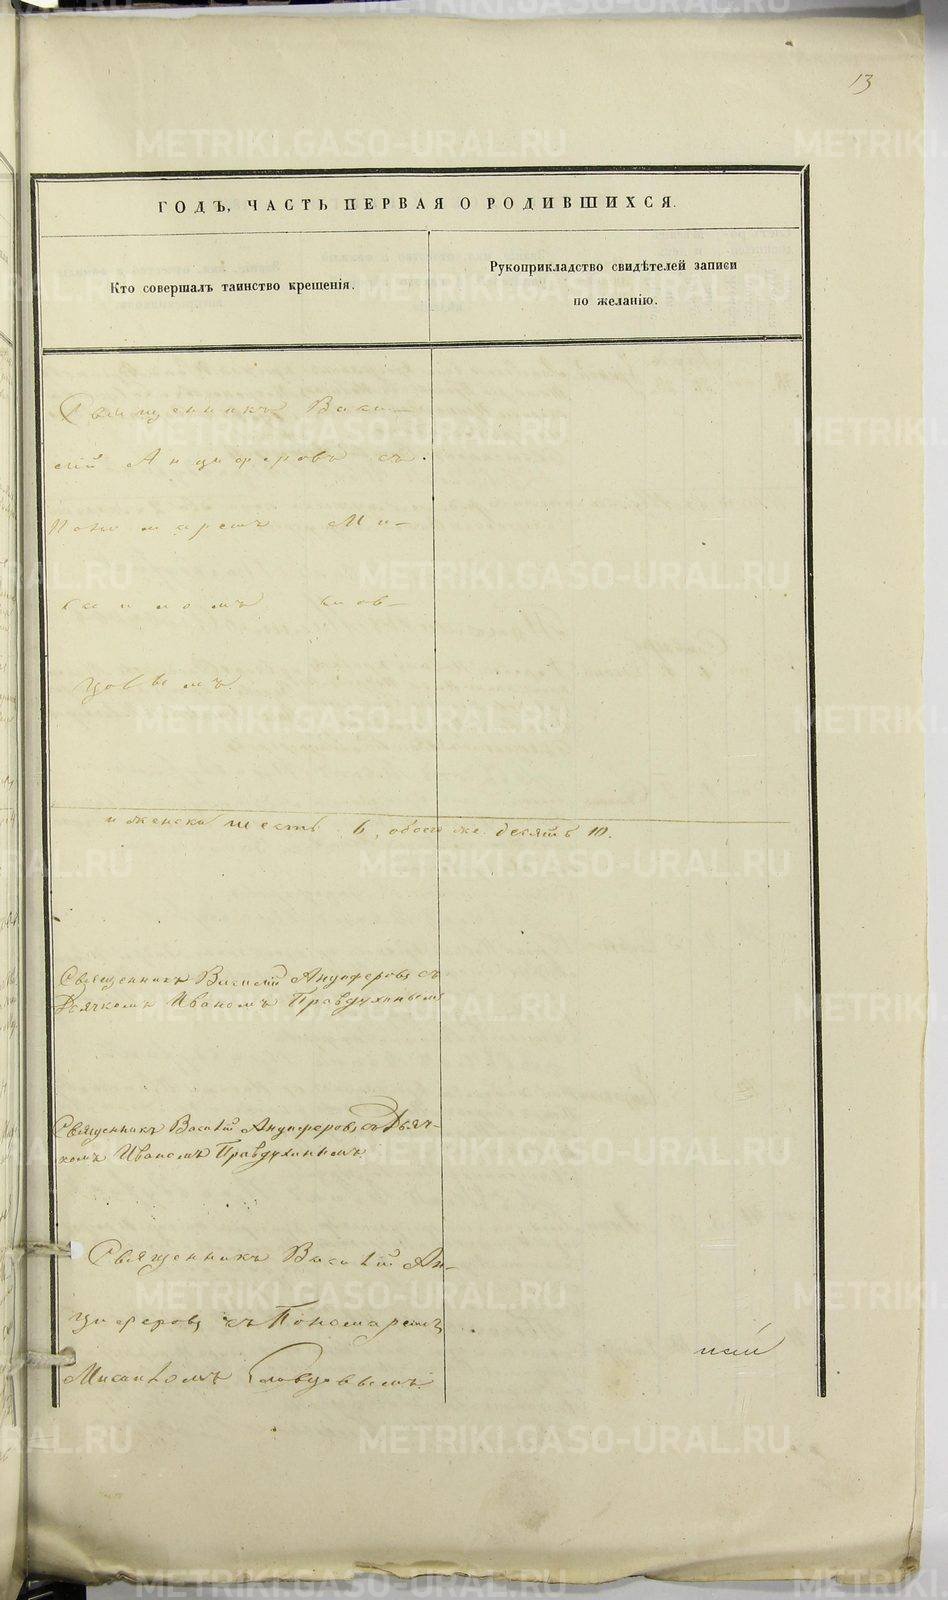 13
ГОДЪ, ЧАСТЬ ПЕРВАЯ О РОДИВШИХСЯ.
Кто совершалъ таинство крещенія.
Рукоприкладство свидѣтелей записи
по желанію.
Священникъ Васи-
лій Анциферовъ съ
Пономаремъ Ми-
саиломъ Слов-
цовымъ.
и женска шесть 6, обоего же десять 10.
Священникъ Василій Анциферовъ съ
Дьячкомъ Иваномъ Правдухинымъ
Священникъ Василій Анциферовъ съ Дьяч-
комъ Иваномъ Правдухинымъ.
Священникъ Василій Ан-
циферовъ съ Пономаремъ
Мисаиломъ Словцовымъ.
METRIKI.GASO-URAL.RU